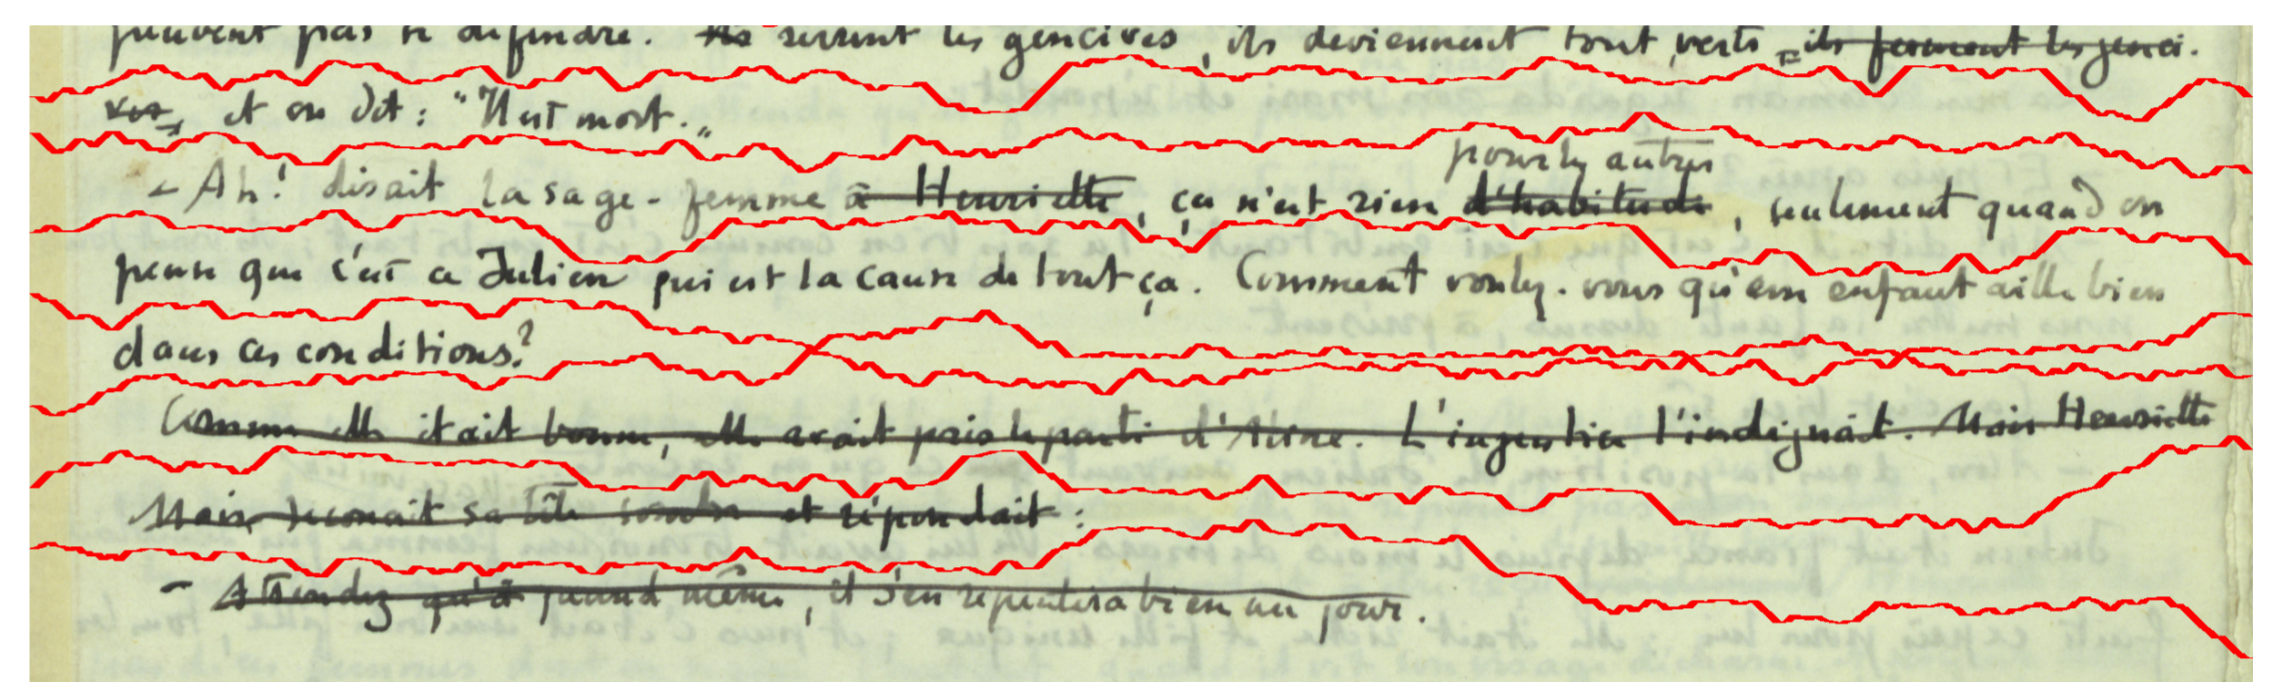 peuvent pas se défendre. Ils serrent les gencives, ils deviennent tout verts = ils ferment les genci.
ves, et on dit : "Il est mort."
pour les autres
- Ah! disait la sage-femme à Henriette, ça n'est rien d'habitude, seulement quand on
pense que c'est ce Julien qui est la cause de tout ça. Comment voulez-vous qu'un enfant aille bien
dans ces conditions?
Comme elle était bonne, elle avait pris le parti d'Aline. L'injustice l'indignait. Mais Henriette
Mais secouait sa tête sombre et répondait :
- Attendez qu'à quand même, il s'en repentira bien un jour.